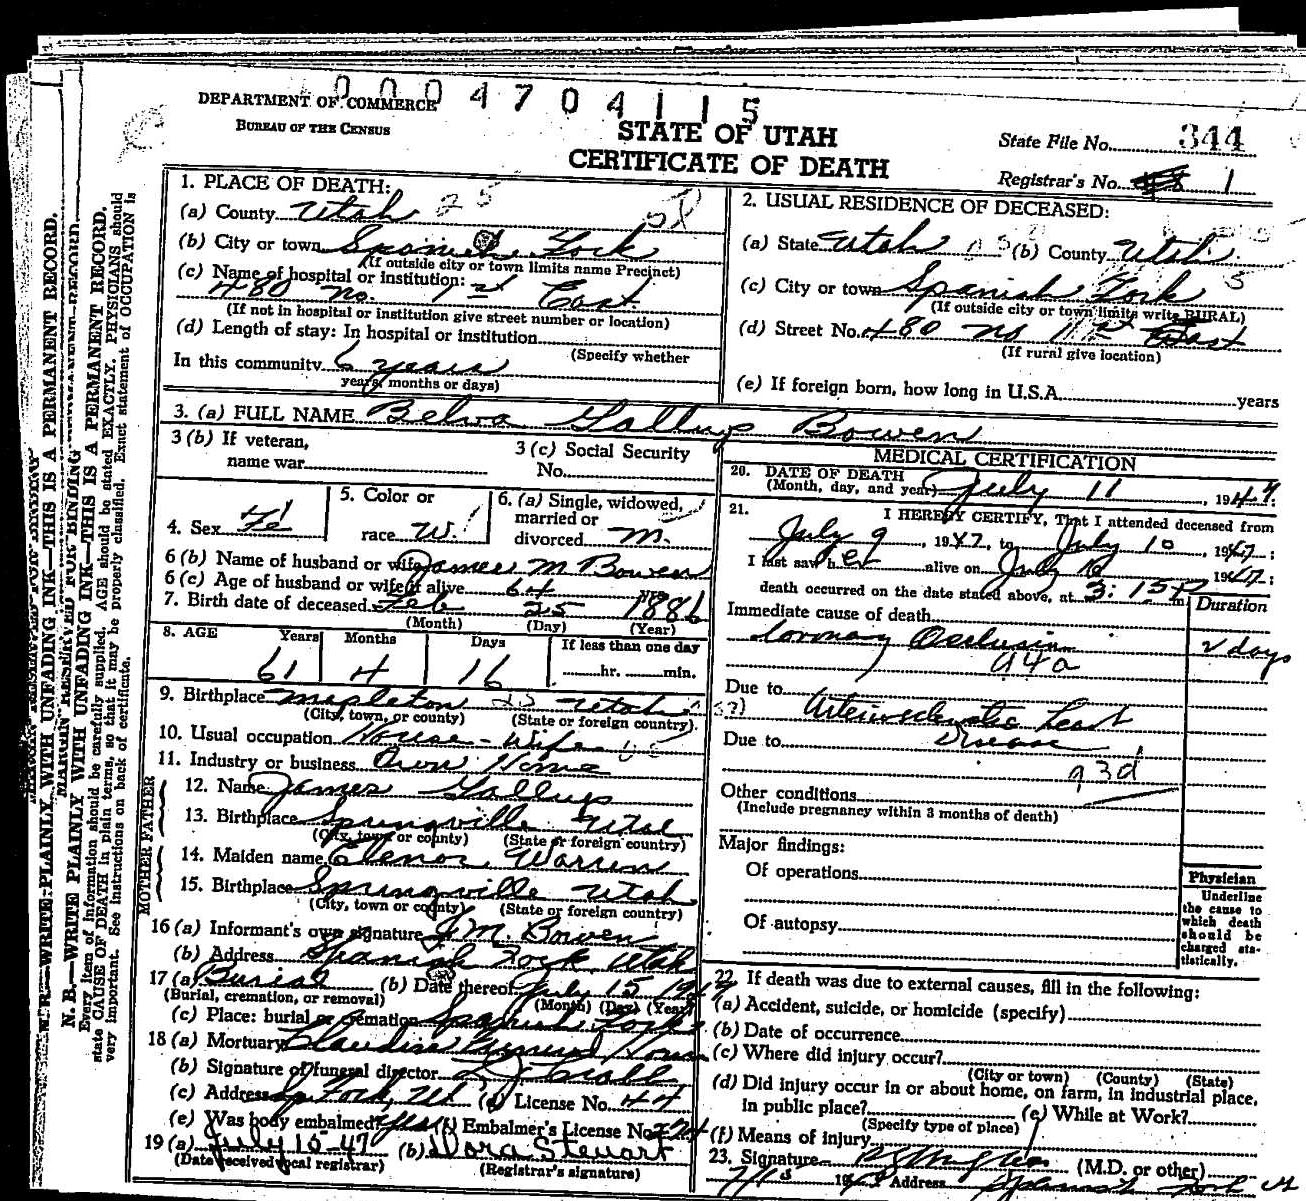 0004704115
DEPARTMENT OF COMMERCE
BUREAU OF THE CENSUS
STATE OF UTAH
CERTIFICATE OF DEATH
State File No. 344
Registrar's No. 1
1. PLACE OF DEATH:
(a) County Utah 25
(b) City or town Spanish Fork
(If outside city or town limits name Precinct)
(c) Name of hospital or institution:
480 no. 1st East
(If not in hospital or institution give street number or location)
(d) Length of stay: In hospital or institution
(Specify whether
In this community 6 years
years, months or days)
2. USUAL RESIDENCE OF DECEASED:
(a) State Utah (b) County Utah
(c) City or town Spanish Fork
(If outside city or town limits write RURAL)
(d) Street No. 480 no 1st East
(If rural give location)
(e) If foreign born, how long in U.S.A. years
3. (a) FULL NAME Belva Gallup Bowen
3 (b) If veteran,
name war
3 (c) Social Security
No.
4. Sex Fe
5. Color or
race W.
6. (a) Single, widowed,
married or
divorced M.
6 (b) Name of husband or wife James M Bowen
6 (c) Age of husband or wife if alive 64
7. Birth date of deceased Feb 25 1886
(Month) (Day) (Year)
8. AGE Years Months Days If less than one day
61 4 16 hr. min.
9. Birthplace Mapleton Utah
(City, town, or county) (State or foreign country)
10. Usual occupation House-Wife
11. Industry or business Own Home
FATHER
12. Name James Gallup
13. Birthplace Springville Utah
(City, town or county) (State or foreign country)
MOTHER
14. Maiden name Elenor Warren
15. Birthplace Springville Utah
(City, town or county) (State or foreign country)
16 (a) Informant's own signature J. M. Bowen
(b) Address Spanish Fork Utah
17 (a) Burial (b) Date thereof July 15 1947
(Burial, cremation, or removal) (Month) (Day) (Year)
(c) Place: burial or cremation Spanish Fork
18 (a) Mortuary Claudin Funeral Home
(b) Signature of funeral director
(c) Address Sp. Fork, Ut. (d) License No. 44
(e) Was body embalmed? Yes (f) Embalmer's License No.
19 (a) July 15-47 (b) Dora Stewart
(Date received local registrar) (Registrar's signature)
MEDICAL CERTIFICATION
20. DATE OF DEATH
(Month, day, and year) July 11, 1947.
21. I HEREBY CERTIFY, That I attended deceased from
July 9, 1947, to July 10, 1947;
I last saw her alive on July 10 1947;
death occurred on the date stated above, at 3:15 P m
Duration
Immediate cause of death
Coronary Occlusion 2 days
94a
Due to Arteriosclerotic heart
Due to Disease
93d
Other conditions
(Include pregnancy within 3 months of death)
Major findings:
Of operations
Of autopsy
Physician
Underline
the cause to
which death
should be
charged sta-
tistically.
22. If death was due to external causes, fill in the following:
(a) Accident, suicide, or homicide (specify)
(b) Date of occurrence
(c) Where did injury occur?
(City or town) (County) (State)
(d) Did injury occur in or about home, on farm, in industrial place,
in public place? (e) While at Work?
(Specify type of place)
(f) Means of injury
23. Signature (M.D. or other)
7/15 Address Spanish Fork Ut
MARGIN RESERVED FOR BINDING
N. B.—WRITE PLAINLY WITH UNFADING INK—THIS IS A PERMANENT RECORD.
Every item of information should be carefully supplied. AGE should be stated EXACTLY. PHYSICIANS should
state CAUSE OF DEATH in plain terms, so that it may be properly classified. Exact statement of OCCUPATION is
very important. See instructions on back of certificate.